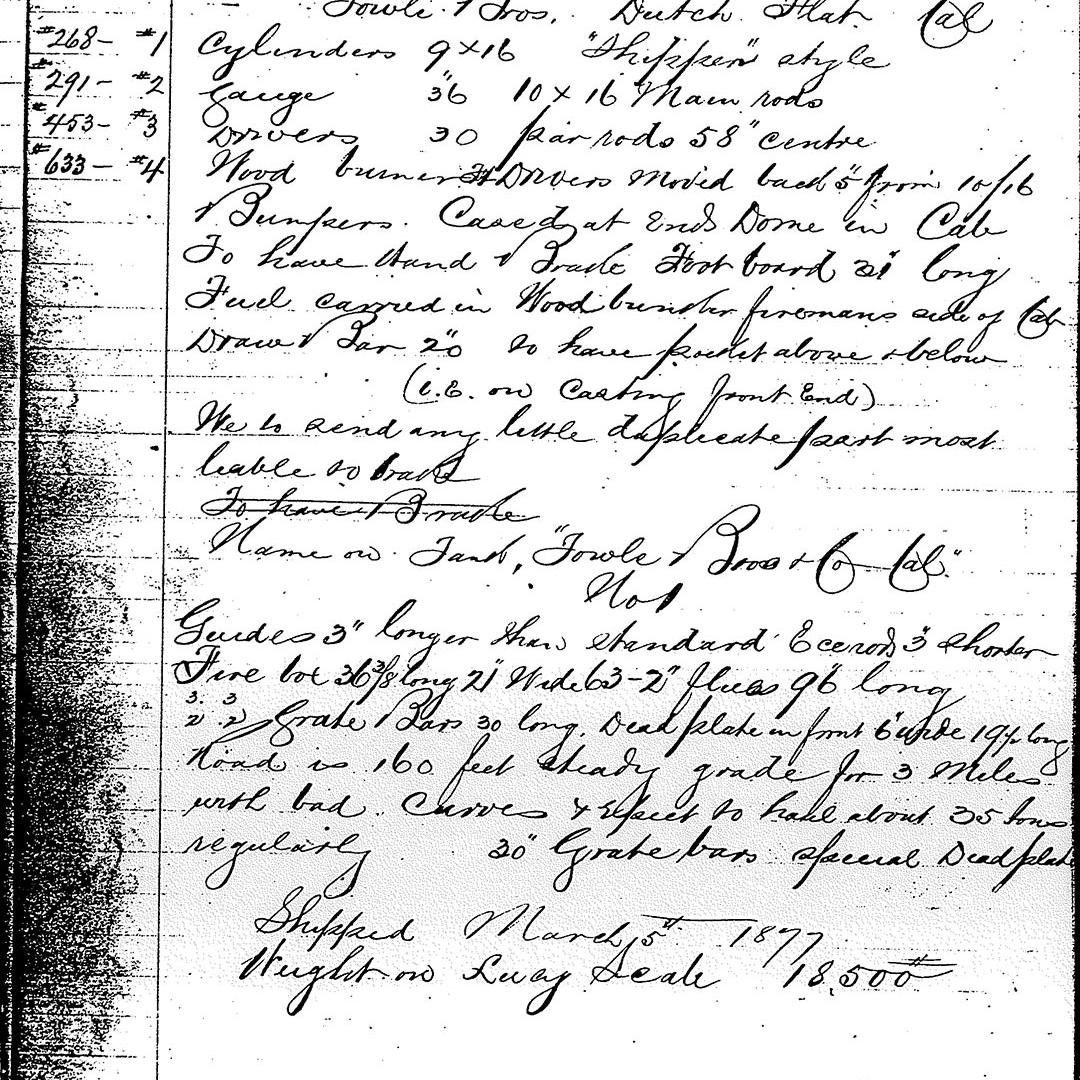 Towle & Bros. Dutch Flat Cal
#268- #1 Cylinders 9x16 "Shippen" style
#291- #2 Gauge 36 10 x 16 Main rods
#453- #3 Drivers 30 par rods 58" centre
#633- #4 Wood burner Drivers moved back 5" from 10/16
& Bumpers. Cased at Ends Dome in Cab
To have Hand & Brake Foot board 21 long
Fuel carried in Wood bunker firemans side of Cab
Draw & Bar 20" to have pocket above & below
(i.E. on Casting front End)
We to send any little duplicate part most
leable to brake
To have & Brake
Name on Tank, "Towle & Bros & Co Cal."
No 1
Guides 3" longer than standard Ecc rods 3" shorter
Fire box 36 3/8 long 21 Wide 63-2" flues 96 long
3. 3
2 2 Grate Bars 30 long. Dead plate in front 6" wide 19 1/2 long
Road is 160 feet steady grade for 3 Miles
with bad Curves & Expect to haul about 35 tons
regularly 30" Grate bars special Dead plate
Shipped March 5" 1877
Weight on Scale 18,500#